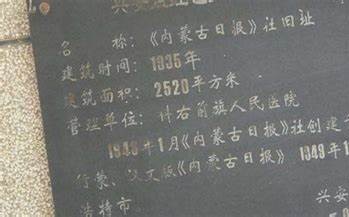 兴安
名 称：《内蒙古日报》社旧址
建筑时间：1935年
建筑面积：2520平方米
管理单位：科右前旗人民医院
1948年1月《内蒙古日报》社创建
行蒙、汉文版《内蒙古日报》 1949年1
浩特市。
兴安